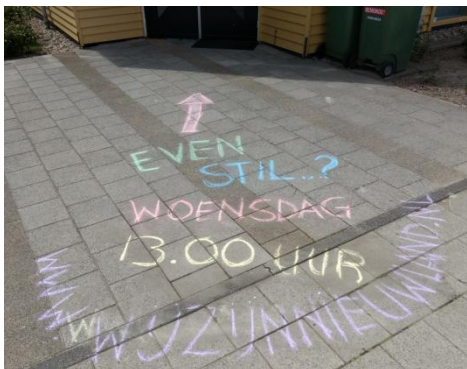 EVEN
STIL..?
WOENSDAG
13.00 UUR
WWW.WIJZIJNNIEUWLAND.NU